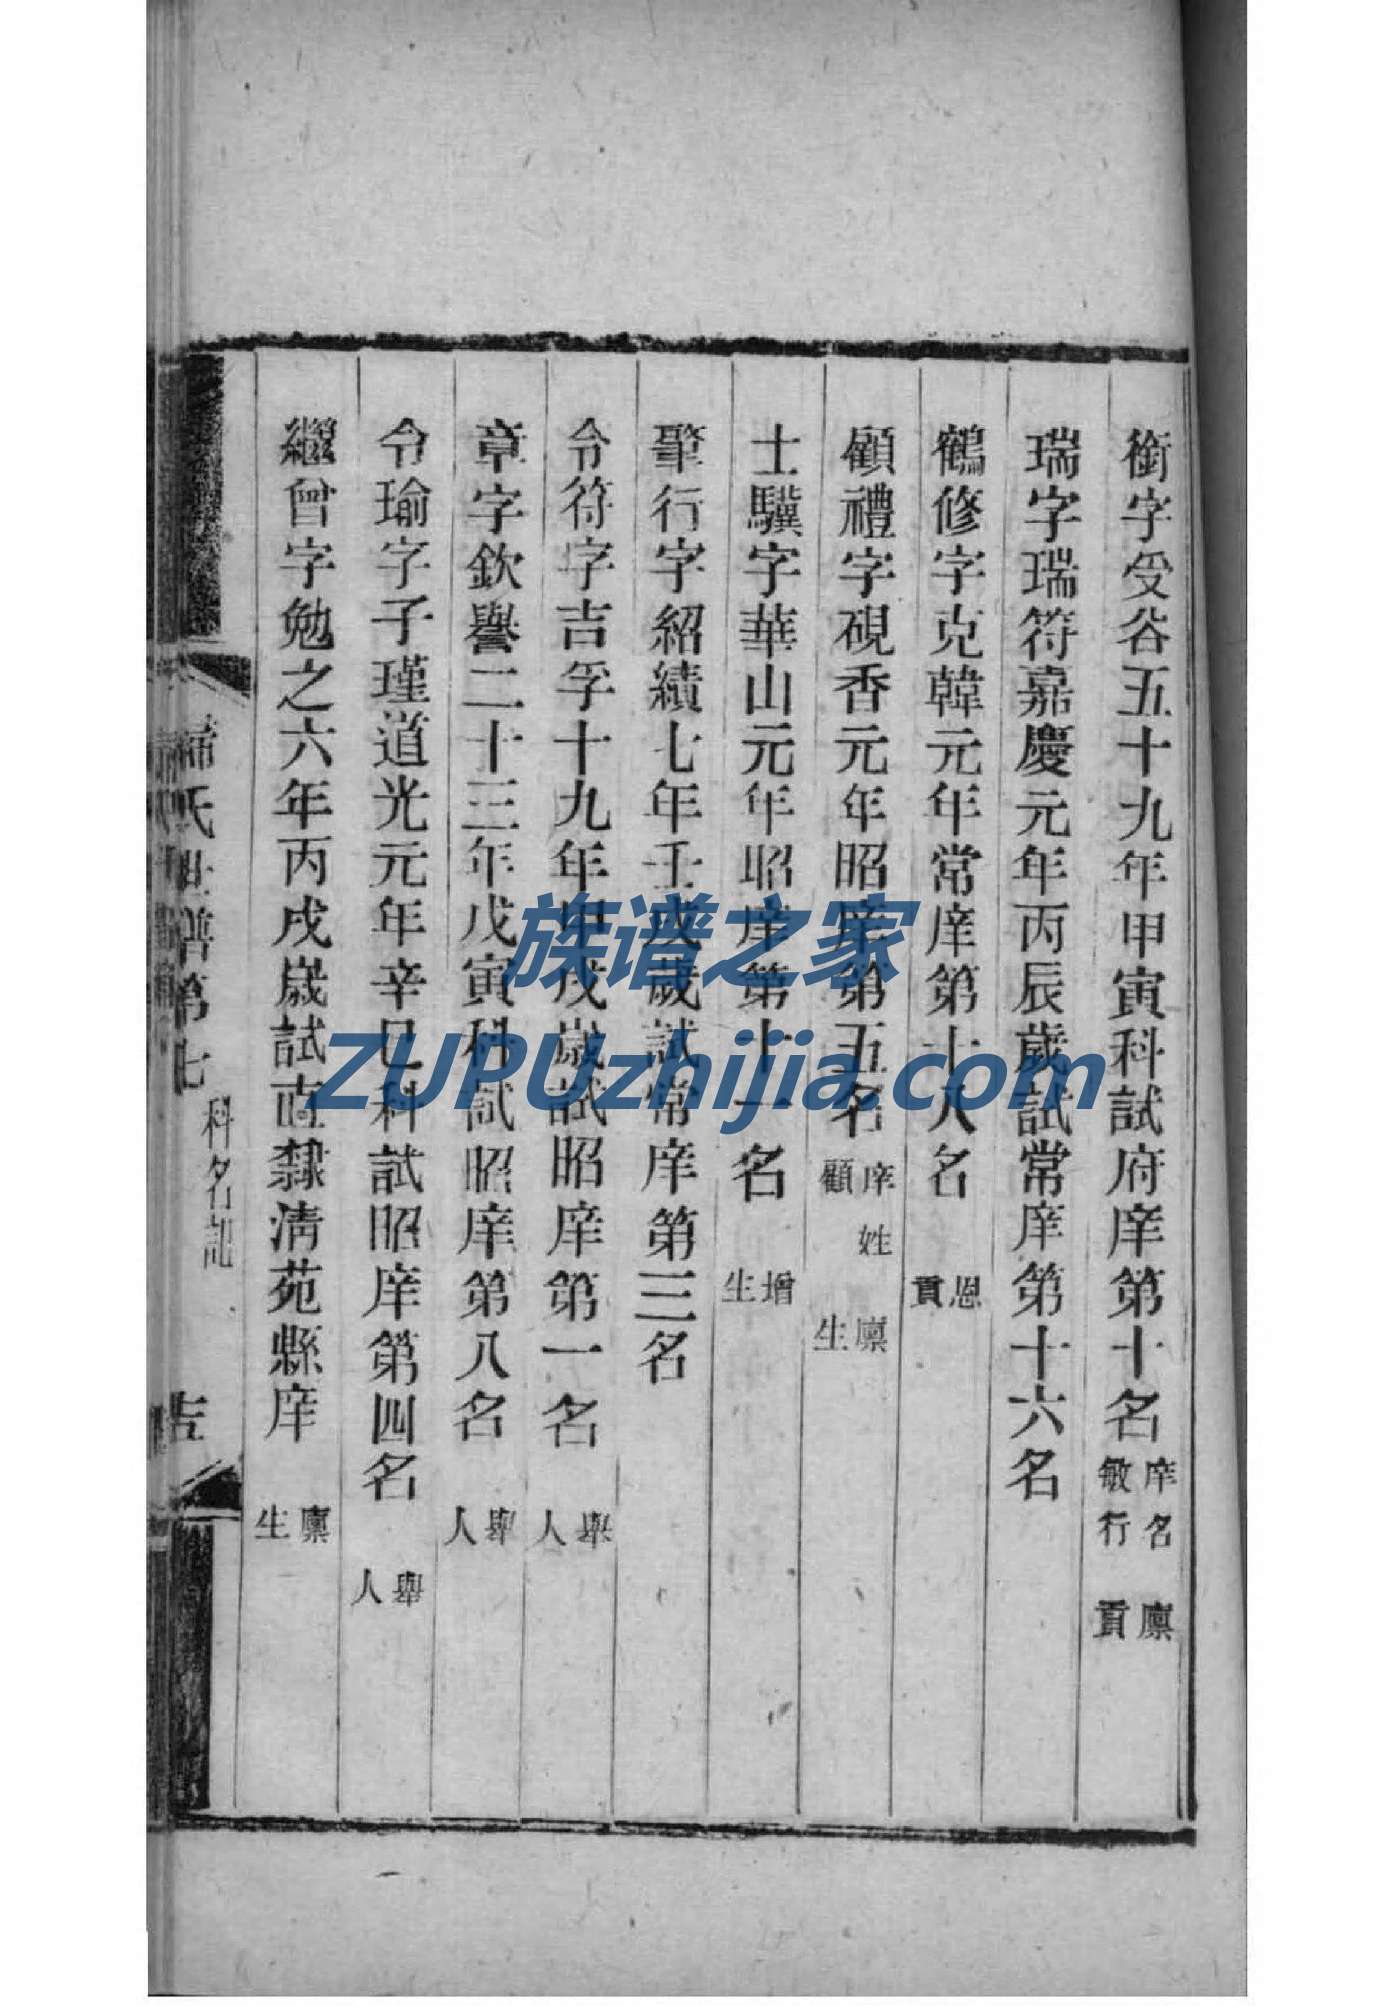 銜字受谷五十九年甲寅科試府庠第十名 庠名敏行 廪貢
瑞字瑞符嘉慶元年丙辰歲試常庠第十六名
鶴修字克韓元年常庠第十八名 恩貢
顧禮字硯香元年昭庠第五名 庠姓顧 廪生
士驥字華山元年昭庠第十一名 增生
肇行字紹績七年壬戌歲試常庠第三名
令符字吉孚十九年甲戌歲試昭庠第一名 舉人
章字欽譽二十三年戊寅科試昭庠第八名 舉人
令瑜字子瑾道光元年辛巳科試昭庠第四名 舉人
繼曾字勉之六年丙戌歲試直隸清苑縣庠 廪生
歸氏世譜第七 科名記
族谱之家
ZUPUzhijia.com